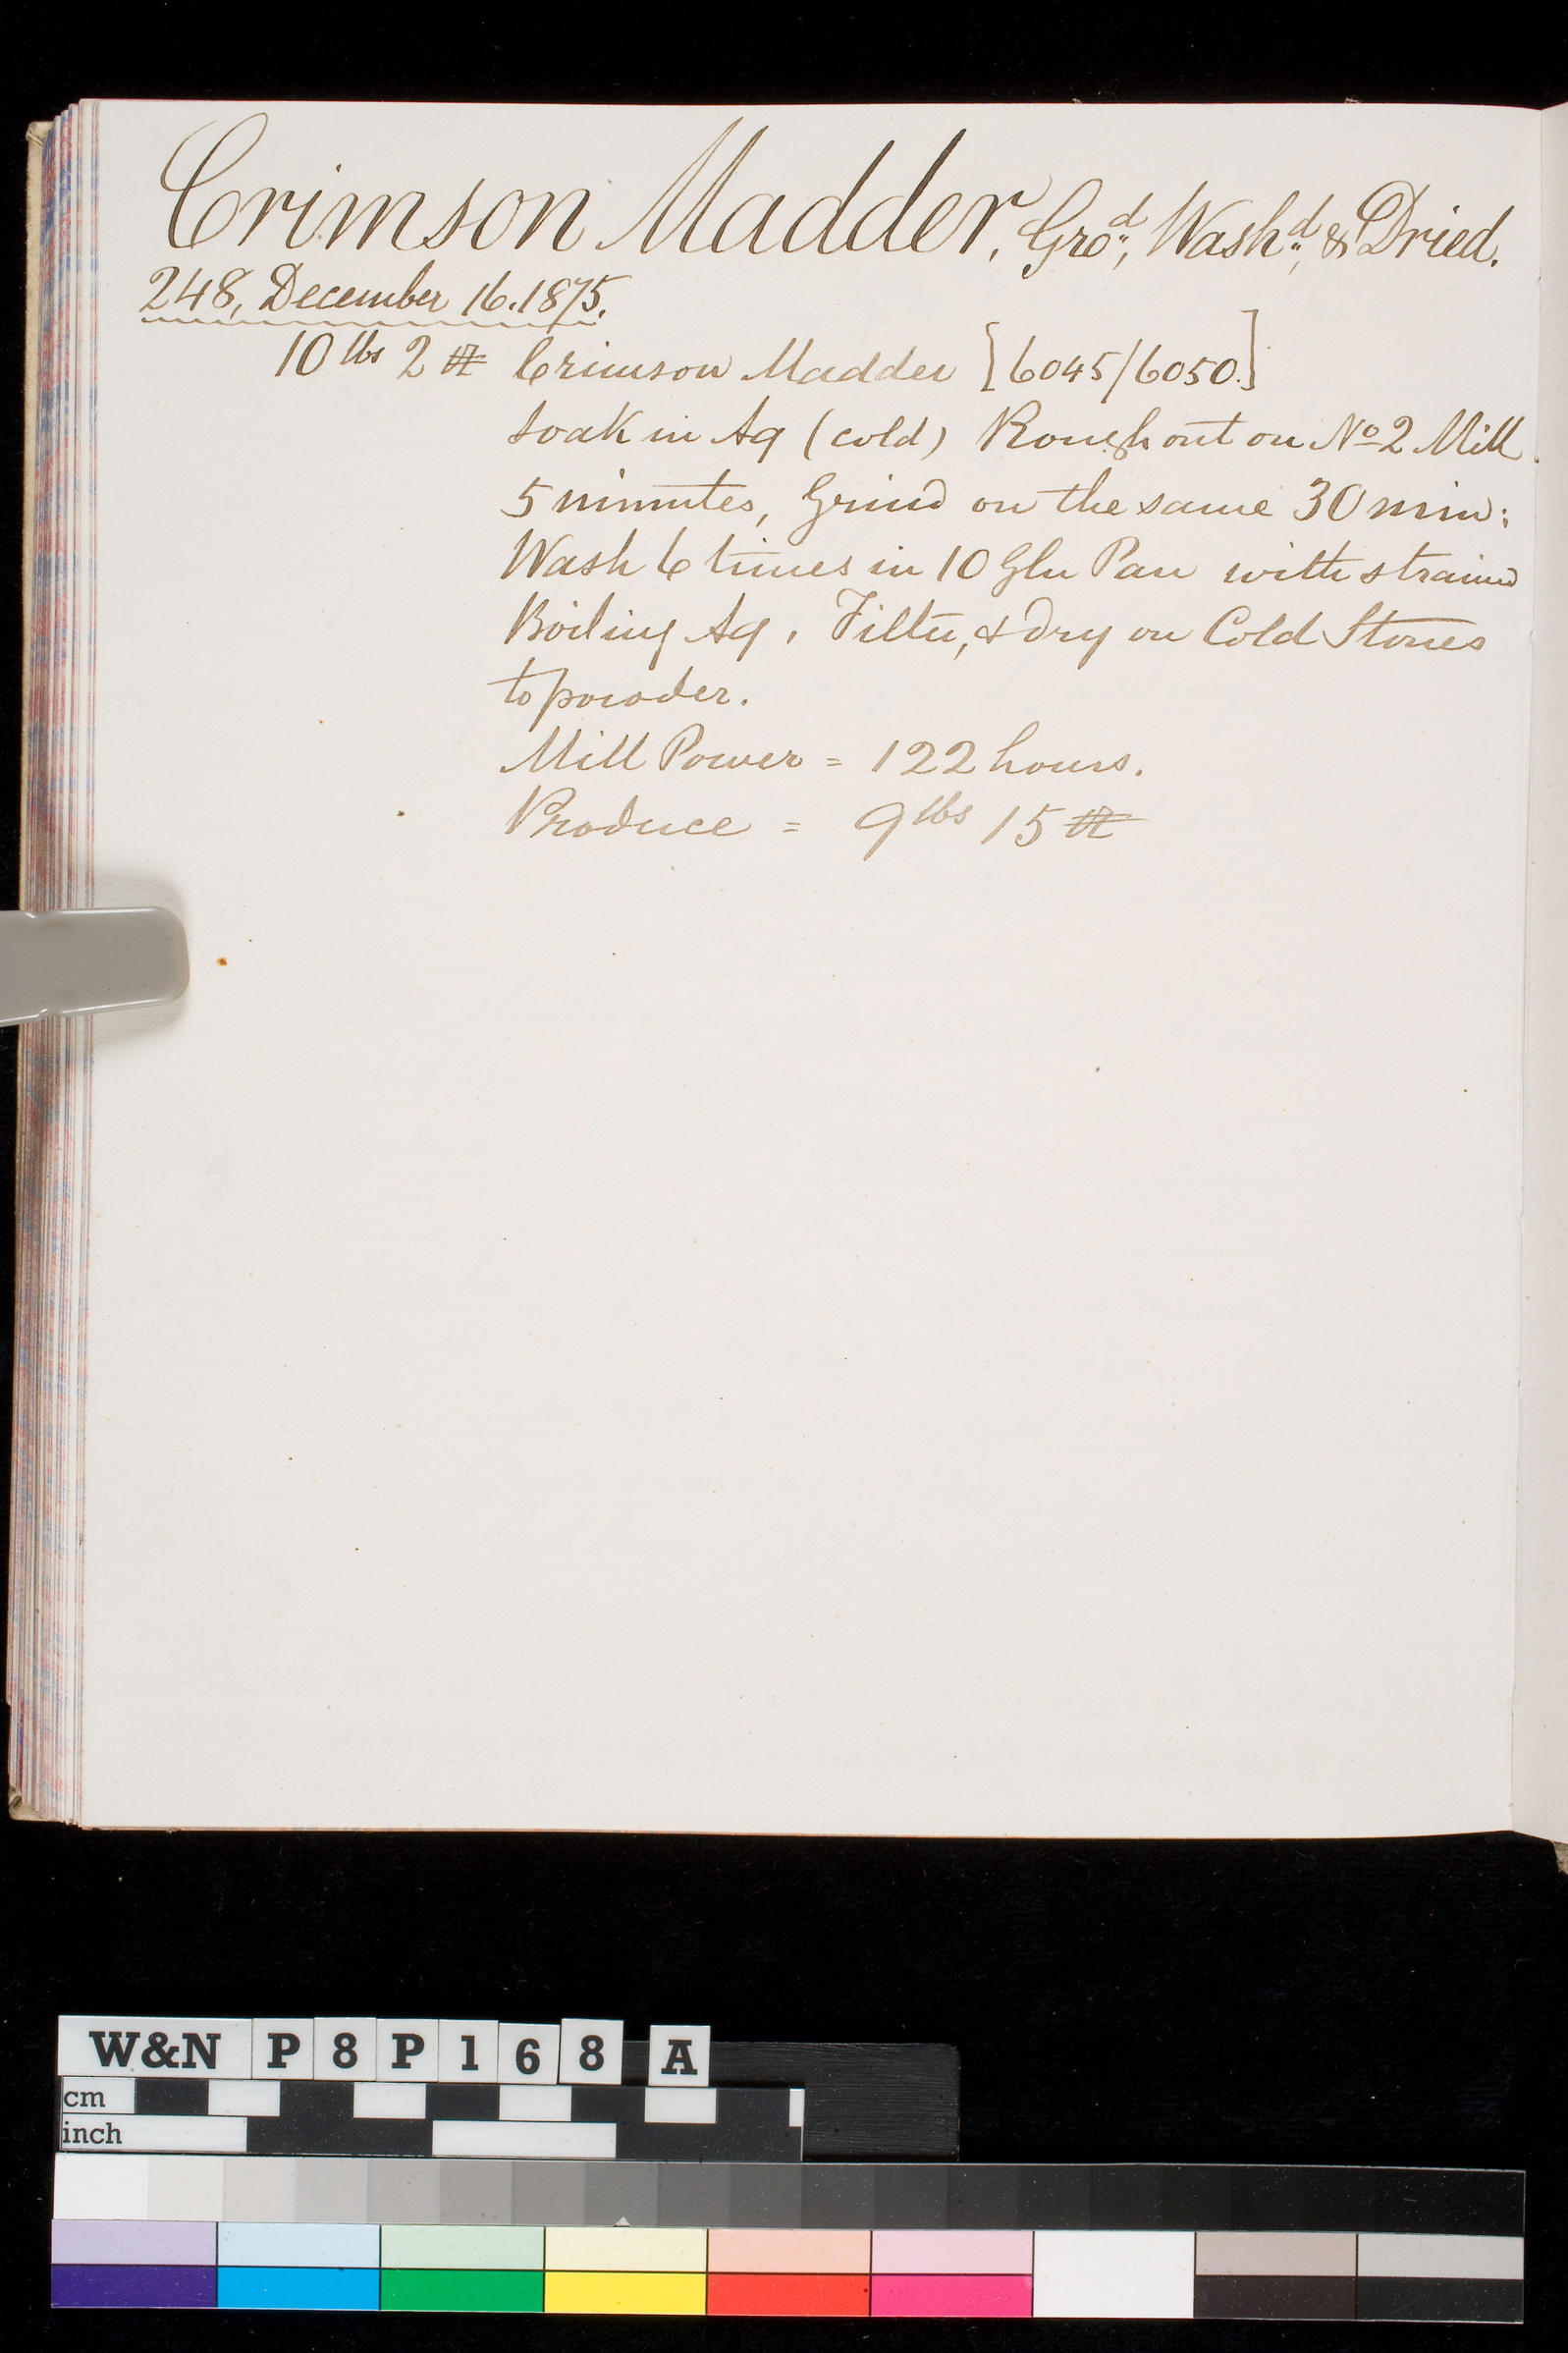 Crimson Madder, Gro.d, Wash.d, & Dried.
248, December 16. 1875.
10 lbs 2 ℔ Crimson Madder [6045/6050.]
soak in Aq (cold) Rough out on No 2 Mill
5 minutes, Grind on the same 30 min:
Wash 6 times in 10 Gln Pan with strained
Boiling Aq. Filter, & dry on Cold Stones
to powder.
Mill Power = 122 hours.
Produce = 9 lbs 15 ℔
W&N P8P168 A
cm
inch